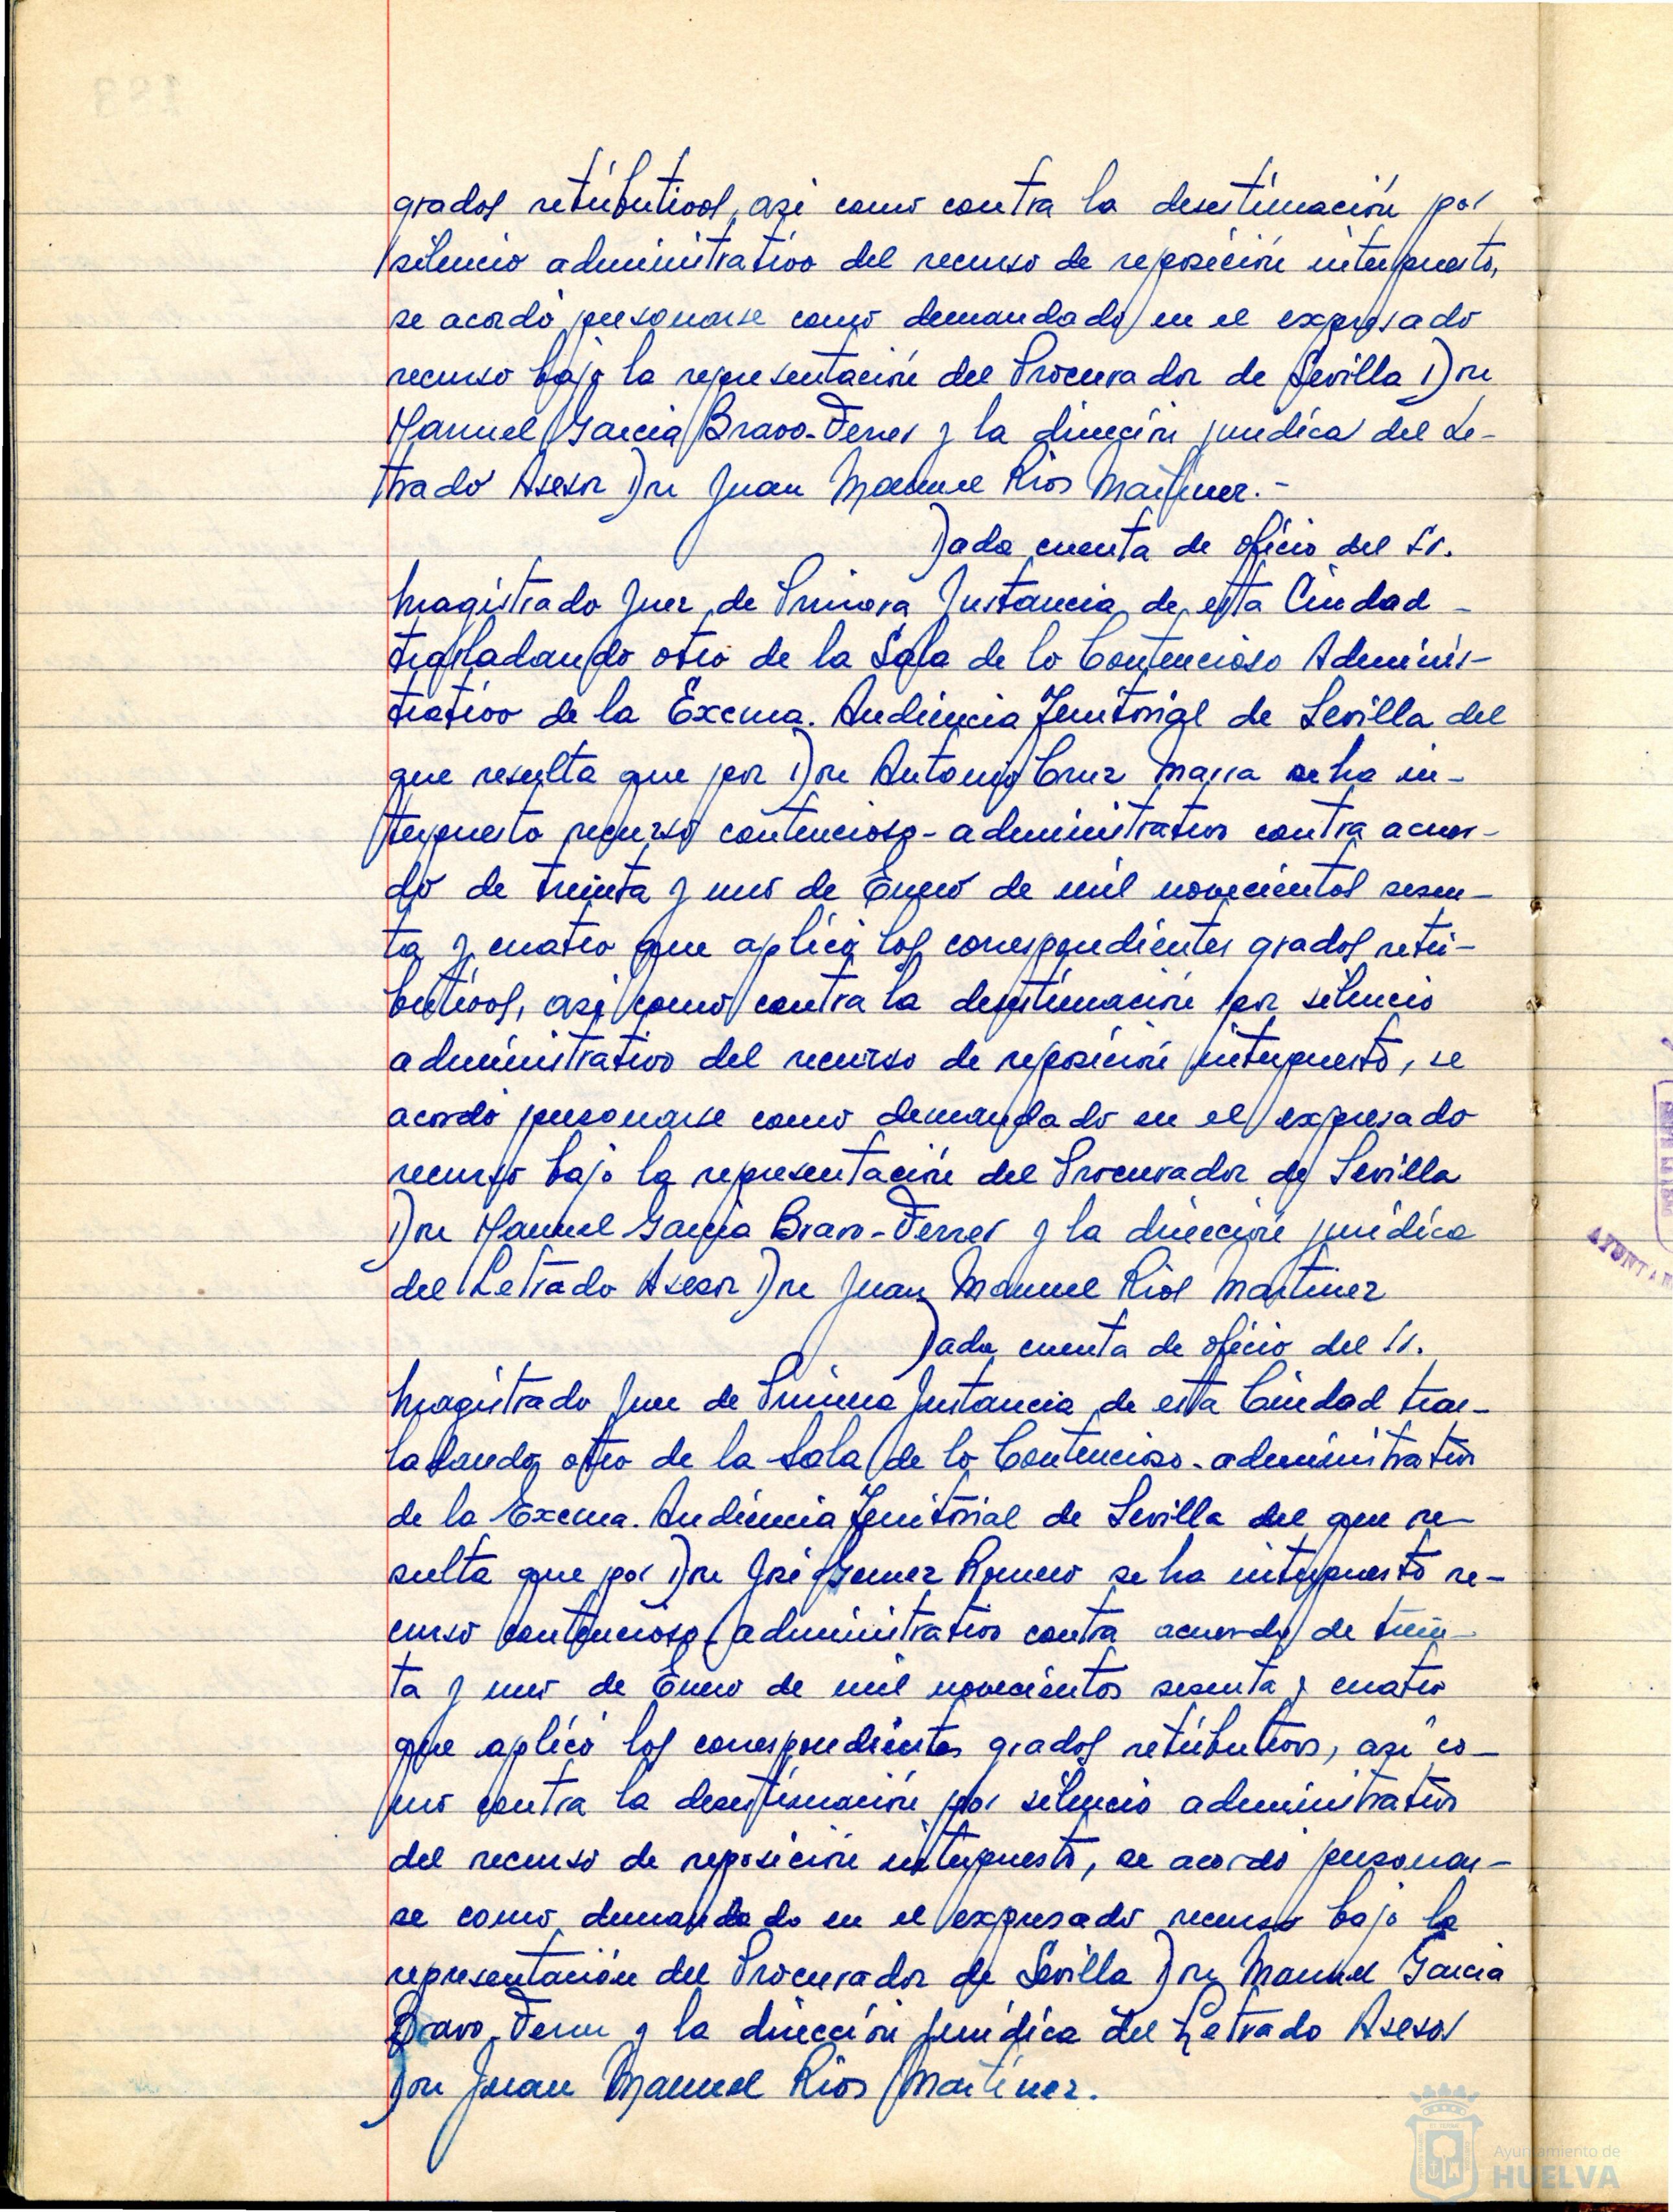 grados retributivos, asi como contra la desestimación por
silencio administrativo del recurso de reposición interpuesto,
se acordó personarse como demandado en el expresado
recurso bajo la representación del Procurador de Sevilla Don
Manuel Garcia Bravo-Ferrer y la dirección juridica del Le-
trado Asesor Don Juan Manuel Rios Martinez.-
Dada cuenta de oficio del Sr.
Magistrado Juez de Primera Instancia de esta Ciudad -
trasladando otro de la Sala de lo Contencioso Adminis-
trativo de la Excma. Audiencia Territorial de Sevilla del
que resulta que por Don Antonio Cruz Marra se ha in-
terpuesto recurso contencioso-administrativo contra acuer-
do de treinta y uno de Enero de mil novecientos sesen-
ta y cuatro que aplicó los correspondientes grados retri-
butivos, asi como contra la desestimación por silencio
administrativo del recurso de reposición interpuesto, se
acordó personarse como demandado en el expresado
recurso bajo la representación del Procurador de Sevilla
Don Manuel Garcia Bravo-Ferrer y la dirección juridica
del Letrado Asesor Don Juan Manuel Rios Martinez
Dada cuenta de oficio del Sr.
Magistrado Juez de Primera Instancia de esta Ciudad tras-
ladando otro de la Sala de lo Contencioso-administrativo
de la Excma. Audiencia Territorial de Sevilla del que re-
sulta que por Don José Gomez Romero se ha interpuesto re-
curso contencioso-administrativo contra acuerdo de trein-
ta y uno de Enero de mil novecientos sesenta y cuatro
que aplicó los correspondientes grados retributivos, asi co-
mo contra la desestimación por silencio administrativo
del recurso de reposición interpuesto, se acordó personar-
se como demandado en el expresado recurso bajo la
representación del Procurador de Sevilla Don Manuel Garcia
Bravo-Ferrer y la dirección juridica del Letrado Asesor
Don Juan Manuel Rios Martinez.
Ayuntamiento de
HUELVA